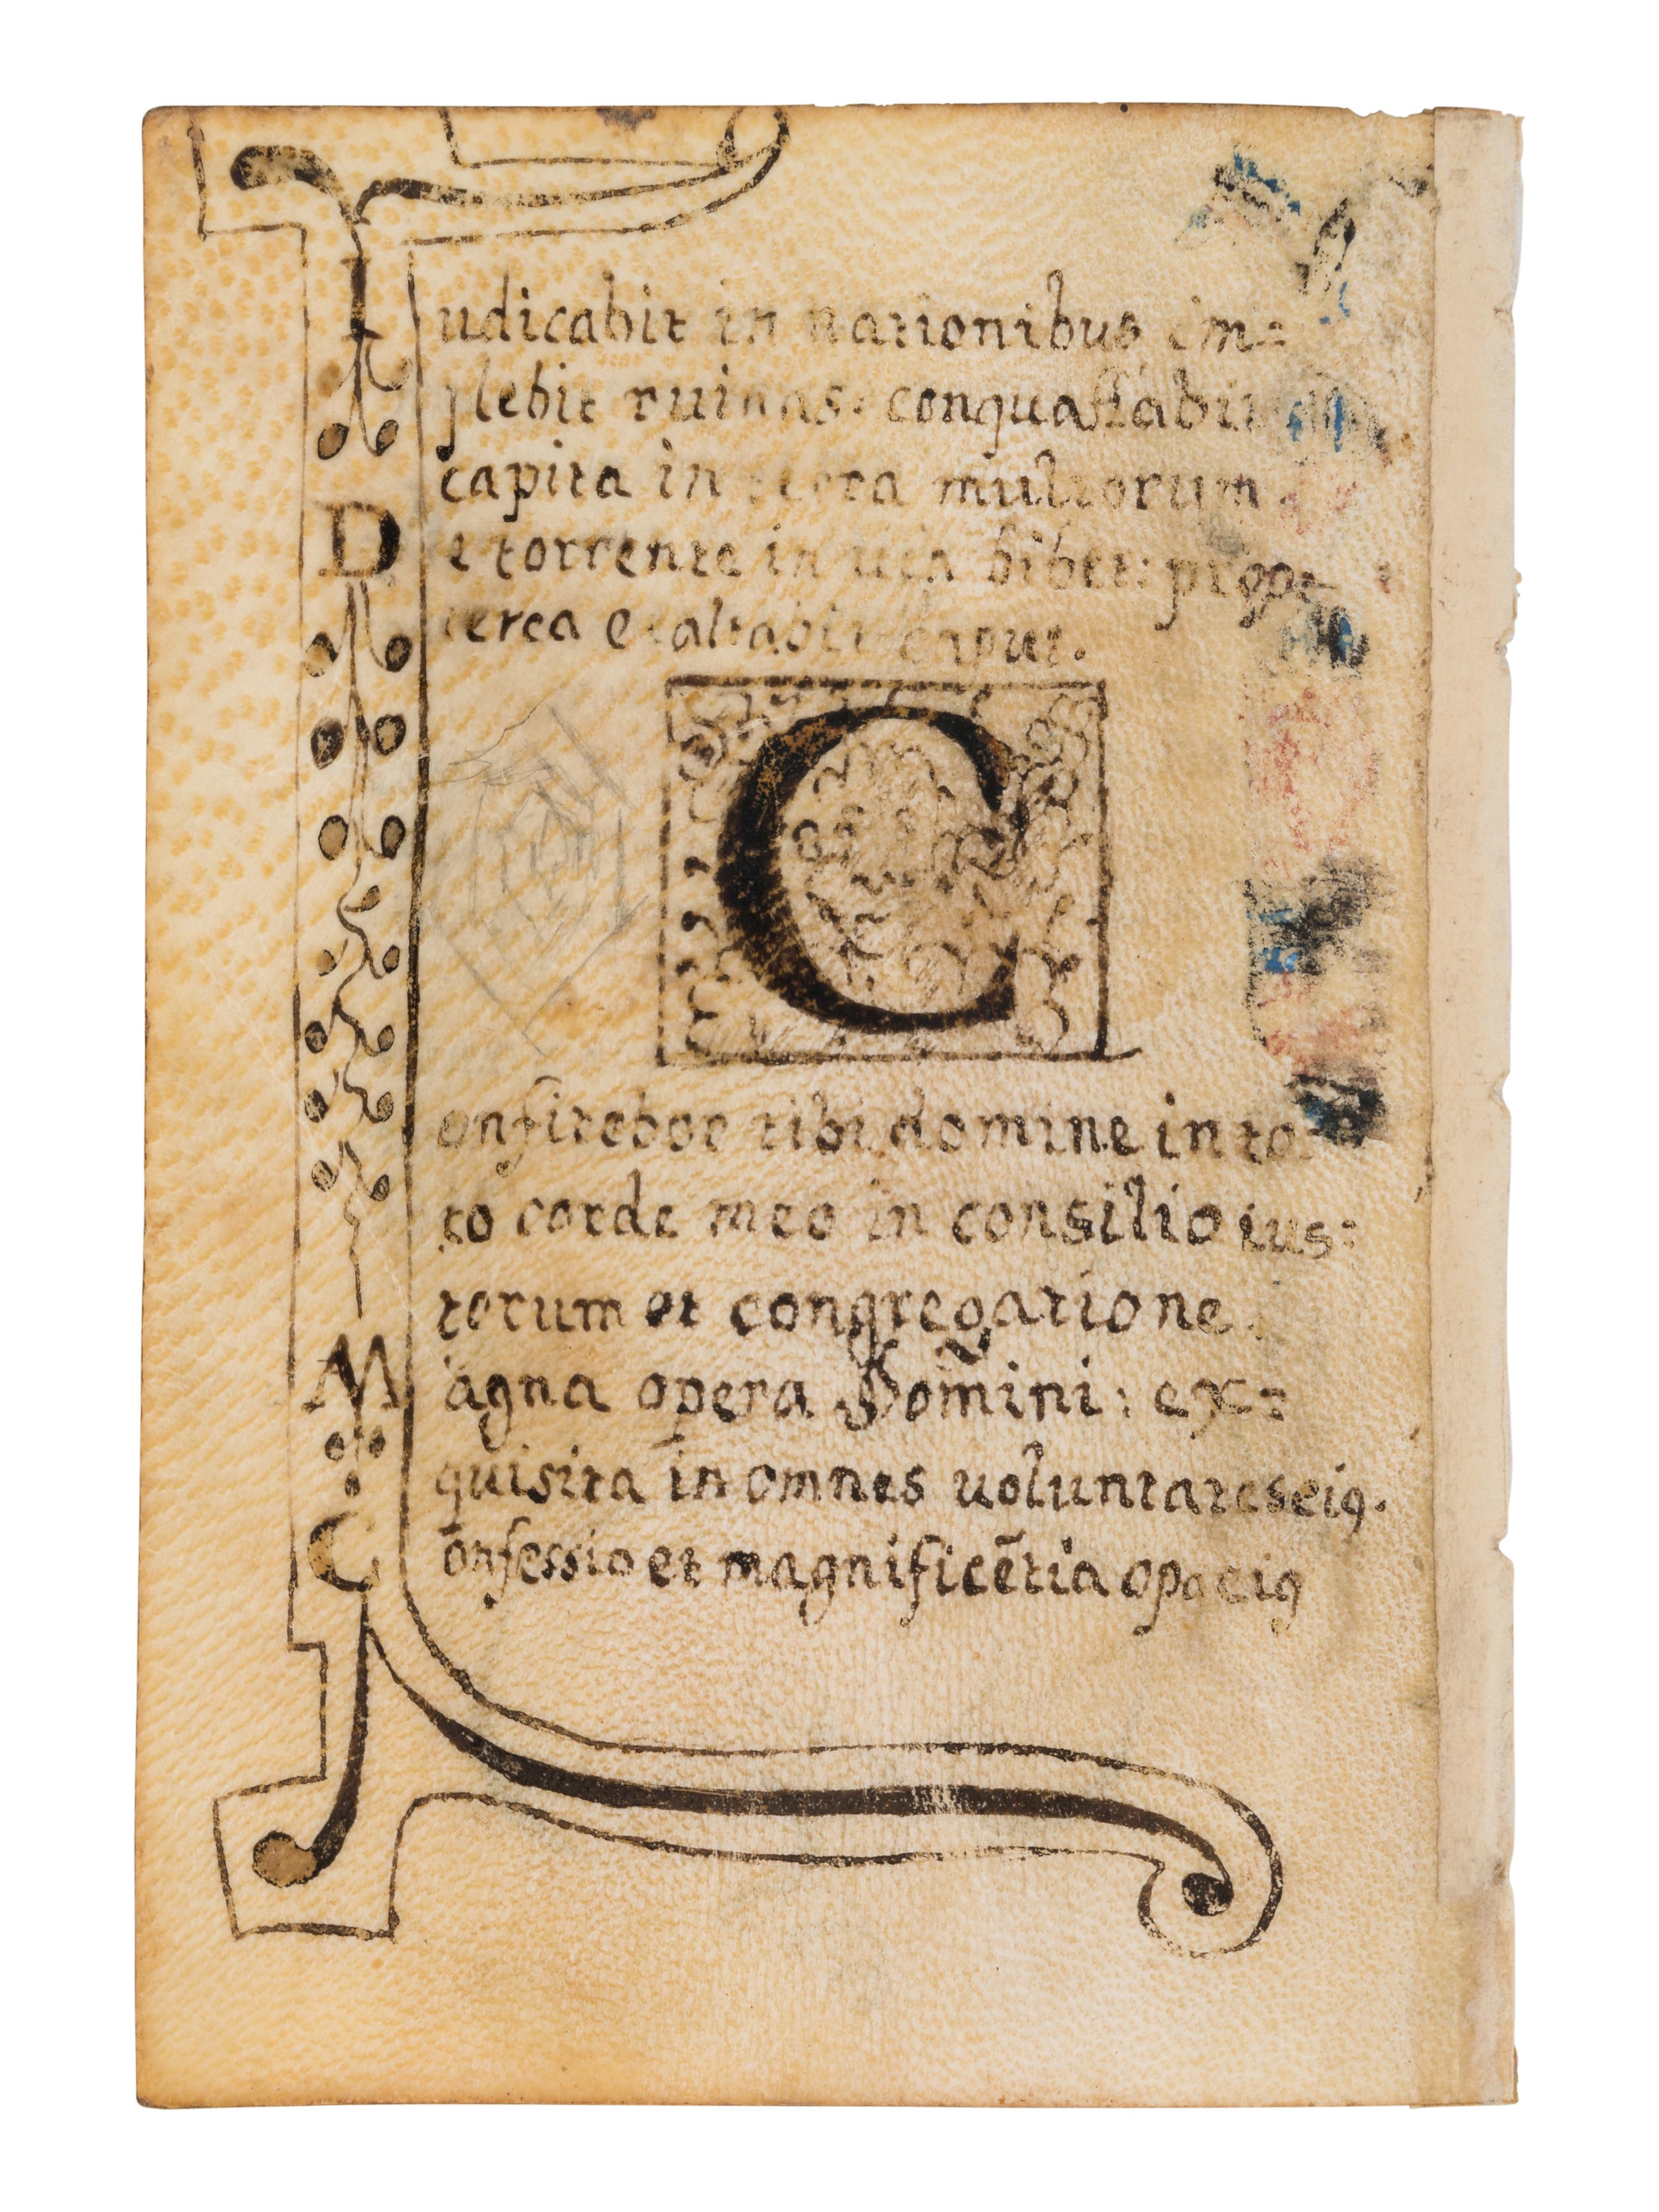 Iudicabit in nationibus im:
plebit ruinas: conquassabit
capita in terra multorum.
De torrente in uia bibet: prop:
terea exaltabit caput.
C
onfitebor tibi domine in to:
to corde meo in consilio ius:
torum et congregatione.
Magna opera Domini: ex:
quisita in omnes uoluntates eiꝯ.
Cōnfessio et magnificētia opꝰ eiꝯ